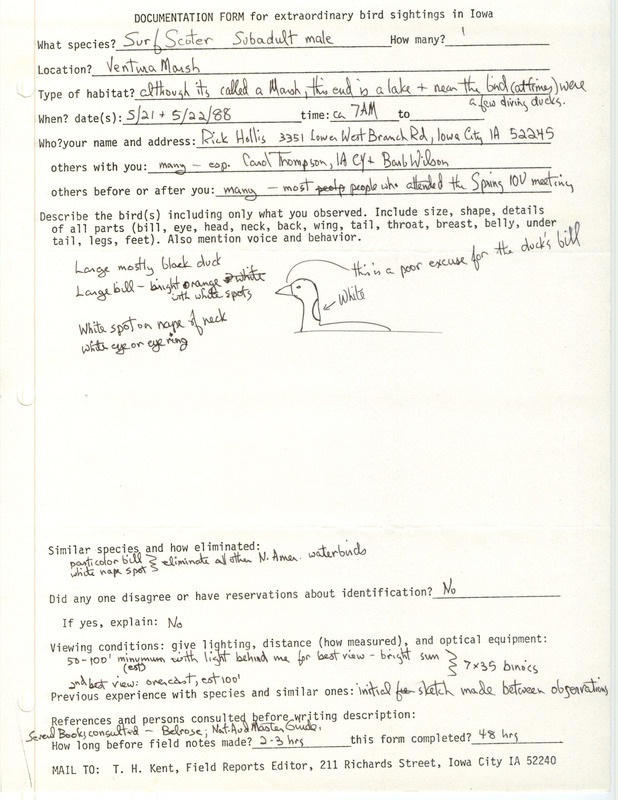 DOCUMENTATION FORM for extraordinary bird sightings in Iowa
What species? Surf Scoter Subadult male How many? 1
Location? Ventura Marsh
Type of habitat? although its called a Marsh, this end is a lake + near the bird (at times) were
a few diving ducks.
When? date(s): 5/21 + 5/22/88 time: ca 7AM to
Who? your name and address: Rick Hollis 3351 Lower West Branch Rd, Iowa City IA 52245
others with you: many - esp. Carol Thompson, IA CY + Barb Wilson
others before or after you: many - most people who attended the Spring IOU meeting
Describe the bird(s) including only what you observed. Include size, shape, details
of all parts (bill, eye, head, neck, back, wing, tail, throat, breast, belly, under
tail, legs, feet). Also mention voice and behavior.
this is a poor excuse for the duck's bill
Large mostly black duck
Large bill - bright orange & white
with white spots
White
White spot on nape of neck
white eye or eye ring
Similar species and how eliminated:
particolor bill } eliminate all other N. Amer. waterbirds
white nape spot
Did any one disagree or have reservations about identification? No
If yes, explain: No
Viewing conditions: give lighting, distance (how measured), and optical equipment:
50-100' minymum with light behind me for best view - bright sun } 7x35 binocs
(est)
2nd best view: overcast, est 100'
Previous experience with species and similar ones: initial sketch made between observations
References and persons consulted before writing description:
Several Books consulted - Belrose; Nat. Aud Master Guide,
How long before field notes made? 2-3 hrs this form completed? 48 hrs
MAIL TO: T. H. Kent, Field Reports Editor, 211 Richards Street, Iowa City IA 52240